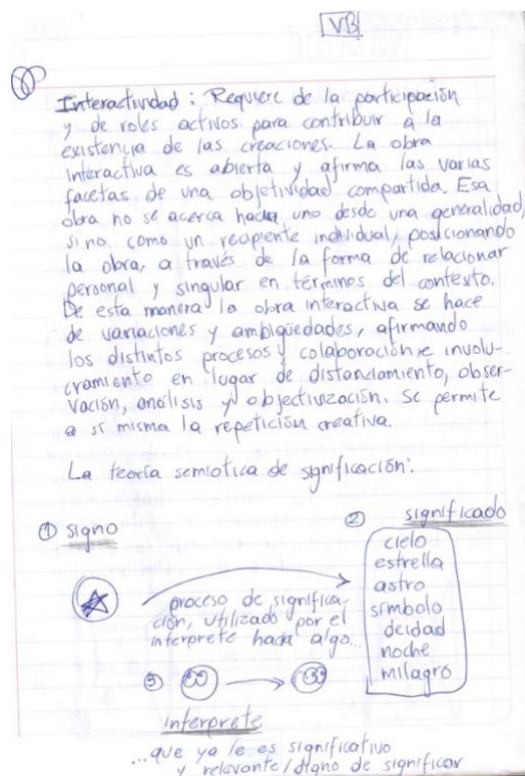 VB
Interactividad: Requiere de la participación
y de roles activos para contribuir a la
existencia de las creaciones. La obra
interactiva es abierta y afirma las varias
facetas de una objetividad compartida. Esa
obra no se acerca hacia uno desde una generalidad,
sino como un recipiente individual, posicionando
la obra, a través de la forma de relacionar
personal y singular en términos del contexto.
De esta manera la obra interactiva se hace
de variaciones y ambigüedades, afirmando
los distintos procesos y colaboración e involu-
cramiento en lugar de distanciamiento, obser-
vación, análisis y objectivización. Se permite
a sí misma la repetición creativa.
La teoría semiotica de significación:
① signo
② significado
cielo
estrella
astro
símbolo
deidad
noche
milagro
proceso de significa-
ción, utilizado por el
interprete hacia algo...
③
interprete
...que ya le es significativo
y relevante/digno de significar